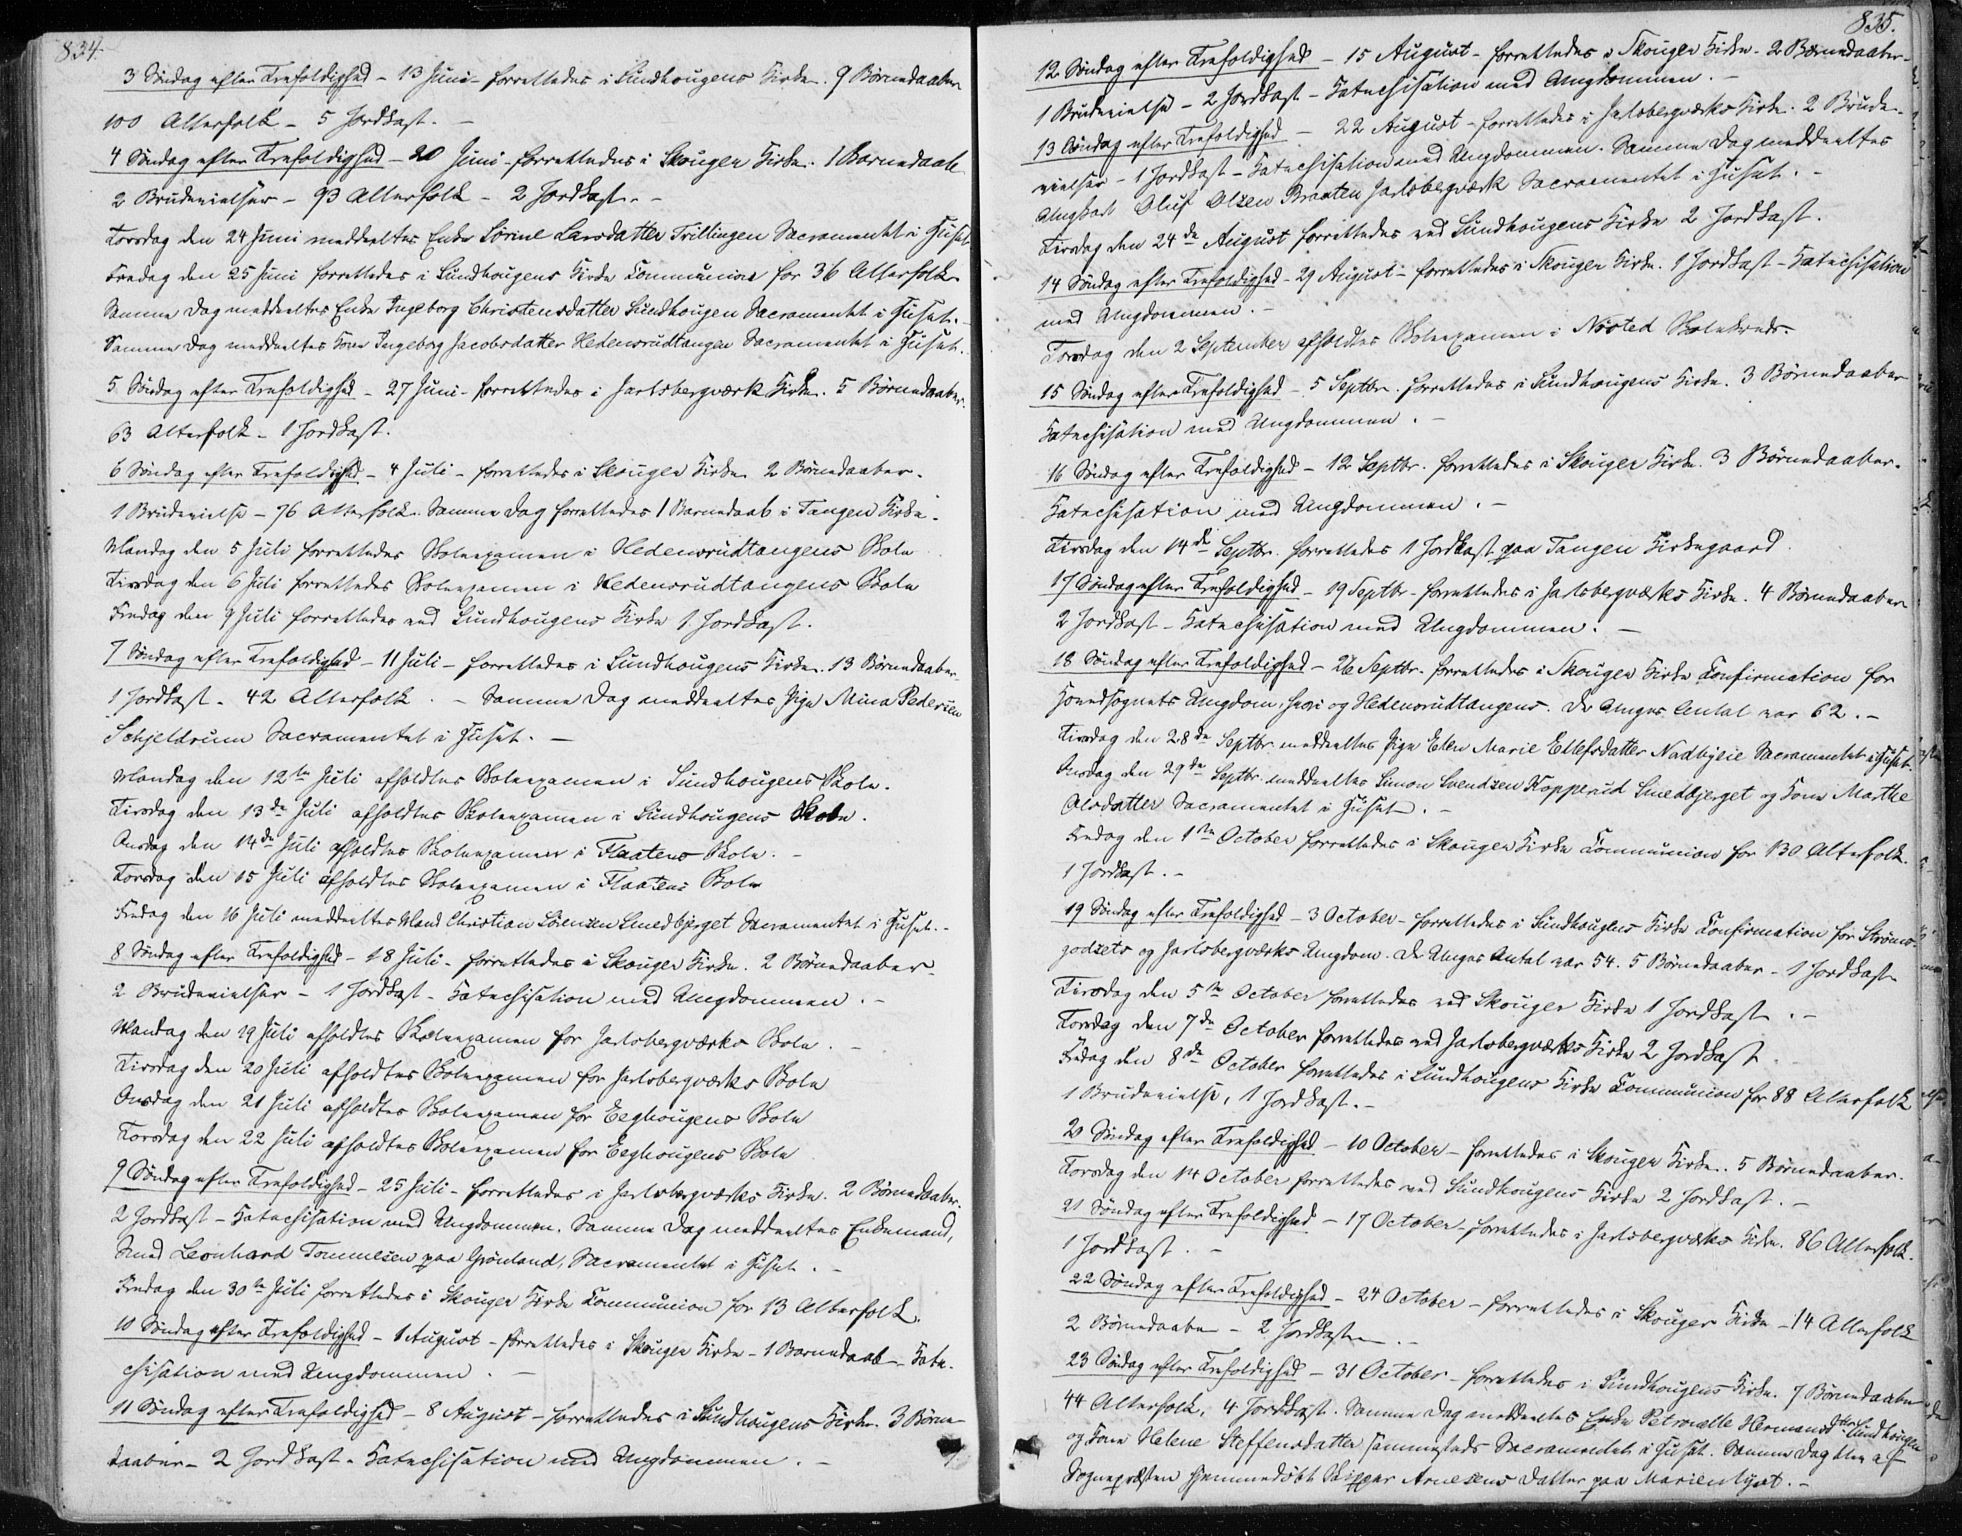 834.
3 Søndag efter Trefoldighed - 13 Juni - forrettedes i Sundhougens Kirke. 9 Børnedaaber
100 Alterfolk - 5 Jordkast. -
4 Søndag efter Trefoldighed - 20 Juni - forrettedes i Skouger Kirke. 1 Barnedaab
2 Brudevielser - 93 Alterfolk - 2 Jordkast. -
Torsdag den 24 Juni meddeeltes Enke Sørine Larsdatter Trillingen Sacramentet i Huset
Fredag den 25 Juni forrettedes i Sundhougens Kirke Communion for 36 Alterfolk
Samme Dag meddeeltes Enke Ingeborg Christensdatter Sundhougen Sacramentet i Huset. -
Samme Dag meddeeltes Kone Ingeborg Jacobsdatter Hedensrudtangen Sacramentet i Huset.
5 Søndag efter Trefoldighed - 27 Juni - forrettedes i Jarlsbergværk Kirke. 5 Børnedaaber.
63 Alterfolk - 1 Jordkast.
6 Søndag efter Trefoldighed - 4 Juli - forrettedes i Skouger Kirke 2 Børnedaaber.
1 Brudevielse - 76 Alterfolk. Samme Dag forrettedes 1 Barnedaab i Tangen Kirke.
Mandag den 5 Juli forrettedes Skoleexamen i Hedensrudtangens Skole
Tirsdag den 6 Juli forrettedes Skoleexamen i Hedensrudtangens Skole
Fredag den 9 Juli forrettedes ved Sundhougens Kirke 1 Jordkast.
7 Søndag efter Trefoldighed - 11 Juli - forrettedes i Sundhougens Kirke. 13 Børnedaaber.
1 Jordkast - 42 Alterfolk. - Samme Dag meddeeltes Pige Mina Pedersen
Schjeldrum Sacramentet i Huset. -
Mandag den 12te Juli afholdtes Skoleexamen i Sundhougens Skole.
Tirsdag den 13de Juli afholdtes Skoleexamen i Sundhougens Skole.
Onsdag den 14de Juli afholdtes Skoleexamen i Flaatens Skole. -
Torsdag den 15 Juli afholdtes Skoleexamen i Flaatens Skole
Fredag den 16 Juli meddeeltes Mand Christian Sörensen Smedbjerget Sacramentet i Huset. -
8 Søndag efter Trefoldighed - 18 Juli - forrettedes i Skouger Kirke. 2 Børnedaaber -
2 Brudevielser - 1 Jordkast - Katechisation med Ungdommen. -
Mandag den 19 Juli afholdtes Skoleexamen for Jarlsbergværks Skole. -
Tirsdag den 20 Juli afholdtes Skoleexamen for Jarlsbergværks Skole
Onsdag den 21 Juli afholdtes Skoleexamen for Eeghougens Skole
Torsdag den 22 Juli afholdtes Skoleexamen for Eeghougens Skole
9 Søndag efter Trefoldighed - 25 Juli - forrettedes i Jarlsbergværks Kirke. 2 Børnedaaber.
2 Jordkast - Katechisation med Ungdommen. Samme Dag meddeeltes Enkemand,
Smed Leonhard Tommesen paa Grönland, Sacramentet i Huset. -
Fredag den 30te Juli forrettedes i Skouger Kirke Communion for 13 Alterfolk.
10 Søndag efter Trefoldighed - 1 August - forrettedes i Skouger Kirke - 1 Barnedaab - Kate-
chisation med Ungdommen. -
11 Søndag efter Trefoldighed - 8 August - forrettedes i Sundhougens Kirke. 3 Børne-
daaber - 2 Jordkast - Katechisation med Ungdommen. -
835.
12 Søndag efter Trefoldighed - 15 August - forrettedes i Skouger Kirke. 2 Børnedaaber -
1 Brudevielse - 2 Jordkast - Katechisation med Ungdommen. -
13 Søndag efter Trefoldighed - 22 August - forrettedes i Jarlsbergværks Kirke. 2 Brude-
vielser - 1 Jordkast - Katechisation med Ungdommen. Samme Dag meddeeltes
Ungkarl Oluf Olsen Braaten Jarlsbergværk Sacramentet i Huset. -
Tirsdag den 24de August forrettedes ved Sundhougens Kirke 2 Jordkast.
14 Søndag efter Trefoldighed - 29 August - forrettedes i Skouger Kirke. 1 Jordkast - Katechisation
med Ungdommen. -
Torsdag den 2 September afholdtes Skoleexamen i Nøsted Skolekreds -
15 Søndag efter Trefoldighed - 5 Septbr. forrettedes i Sundhougens Kirke. 3 Børnedaaber
Katechisation med Ungdommen. -
16 Søndag efter Trefoldighed - 12 Septbr. forrettedes i Skouger Kirke. 3 Børnedaaber.
Katechisation med Ungdommen. -
Tirsdag den 14de Septbr. forrettedes 1 Jordkast paa Tangen Kirkegaard.
17 Søndag efter Trefoldighed - 19 Septbr. forrettedes i Jarlsbergværks Kirke. 4 Børnedaaber
2 Jordkast - Katechisation med Ungdommen. -
18 Søndag efter Trefoldighed - 26 Septbr. forrettedes i Skouger Kirke Confirmation for
Hovedsognets Ungdom, og Hedensrudtangens. De Unges Antal var 62. -
Tirsdag den 28de Septbr. meddeeltes Pige Elen Marie Ellefsdatter Sacramentet i Huset.
Onsdag den 29de Septbr. meddeeltes Simon Svendsen Kopperud Smedbjerget og Kone Marthe
Olsdatter Sacramentet i Huset. -
Fredag den 1ste October forrettedes i Skouger Kirke Communion for 130 Alterfolk.
1 Jordkast. -
19 Søndag efter Trefoldighed - 3 October - forrettedes i Sundhougens Kirke Confirmation for Strøms-
godsets og Jarlsbergværks Ungdom. De Unges Antal var 54. 5 Børnedaaber - 1 Jordkast
Tirsdag den 5te October forrettedes ved Skouger Kirke 1 Jordkast. -
Torsdag den 7de October forrettedes ved Jarlsbergværks Kirke 2 Jordkast.
Fredag den 8de October forrettedes i Sundhougens Kirke Communion for 88 Alterfolk
1 Brudevielse, 1 Jordkast. -
20 Søndag efter Trefoldighed - 10 October - forrettedes i Skouger Kirke. 5 Børnedaaber.
Torsdag den 14 October forrettedes ved Sundhougens Kirke 2 Jordkast. -
21 Søndag efter Trefoldighed - 17 October - forrettedes i Jarlsbergværks Kirke. 86 Alterfolk.
1 Jordkast. -
22 Søndag efter Trefoldighed - 24 October - forrettedes i Skouger Kirke - 14 Alterfolk
2 Børnedaaber - 2 Jordkaster. -
23 Søndag efter Trefoldighed - 31 October - forrettedes i Sundhougens Kirke. 7 Børnedaaber
44 Alterfolk, 4 Jordkast. Samme Dag meddeeltes Enke Petronelle Hermansdtter Sundhougen
og Kone Helene Steffensdatter sammesteds Sacramentet i Huset. Samme Dag blev af
Sognepræsten hjemmedøbt Skipper Arnesens Datter paa Marienlyst. -